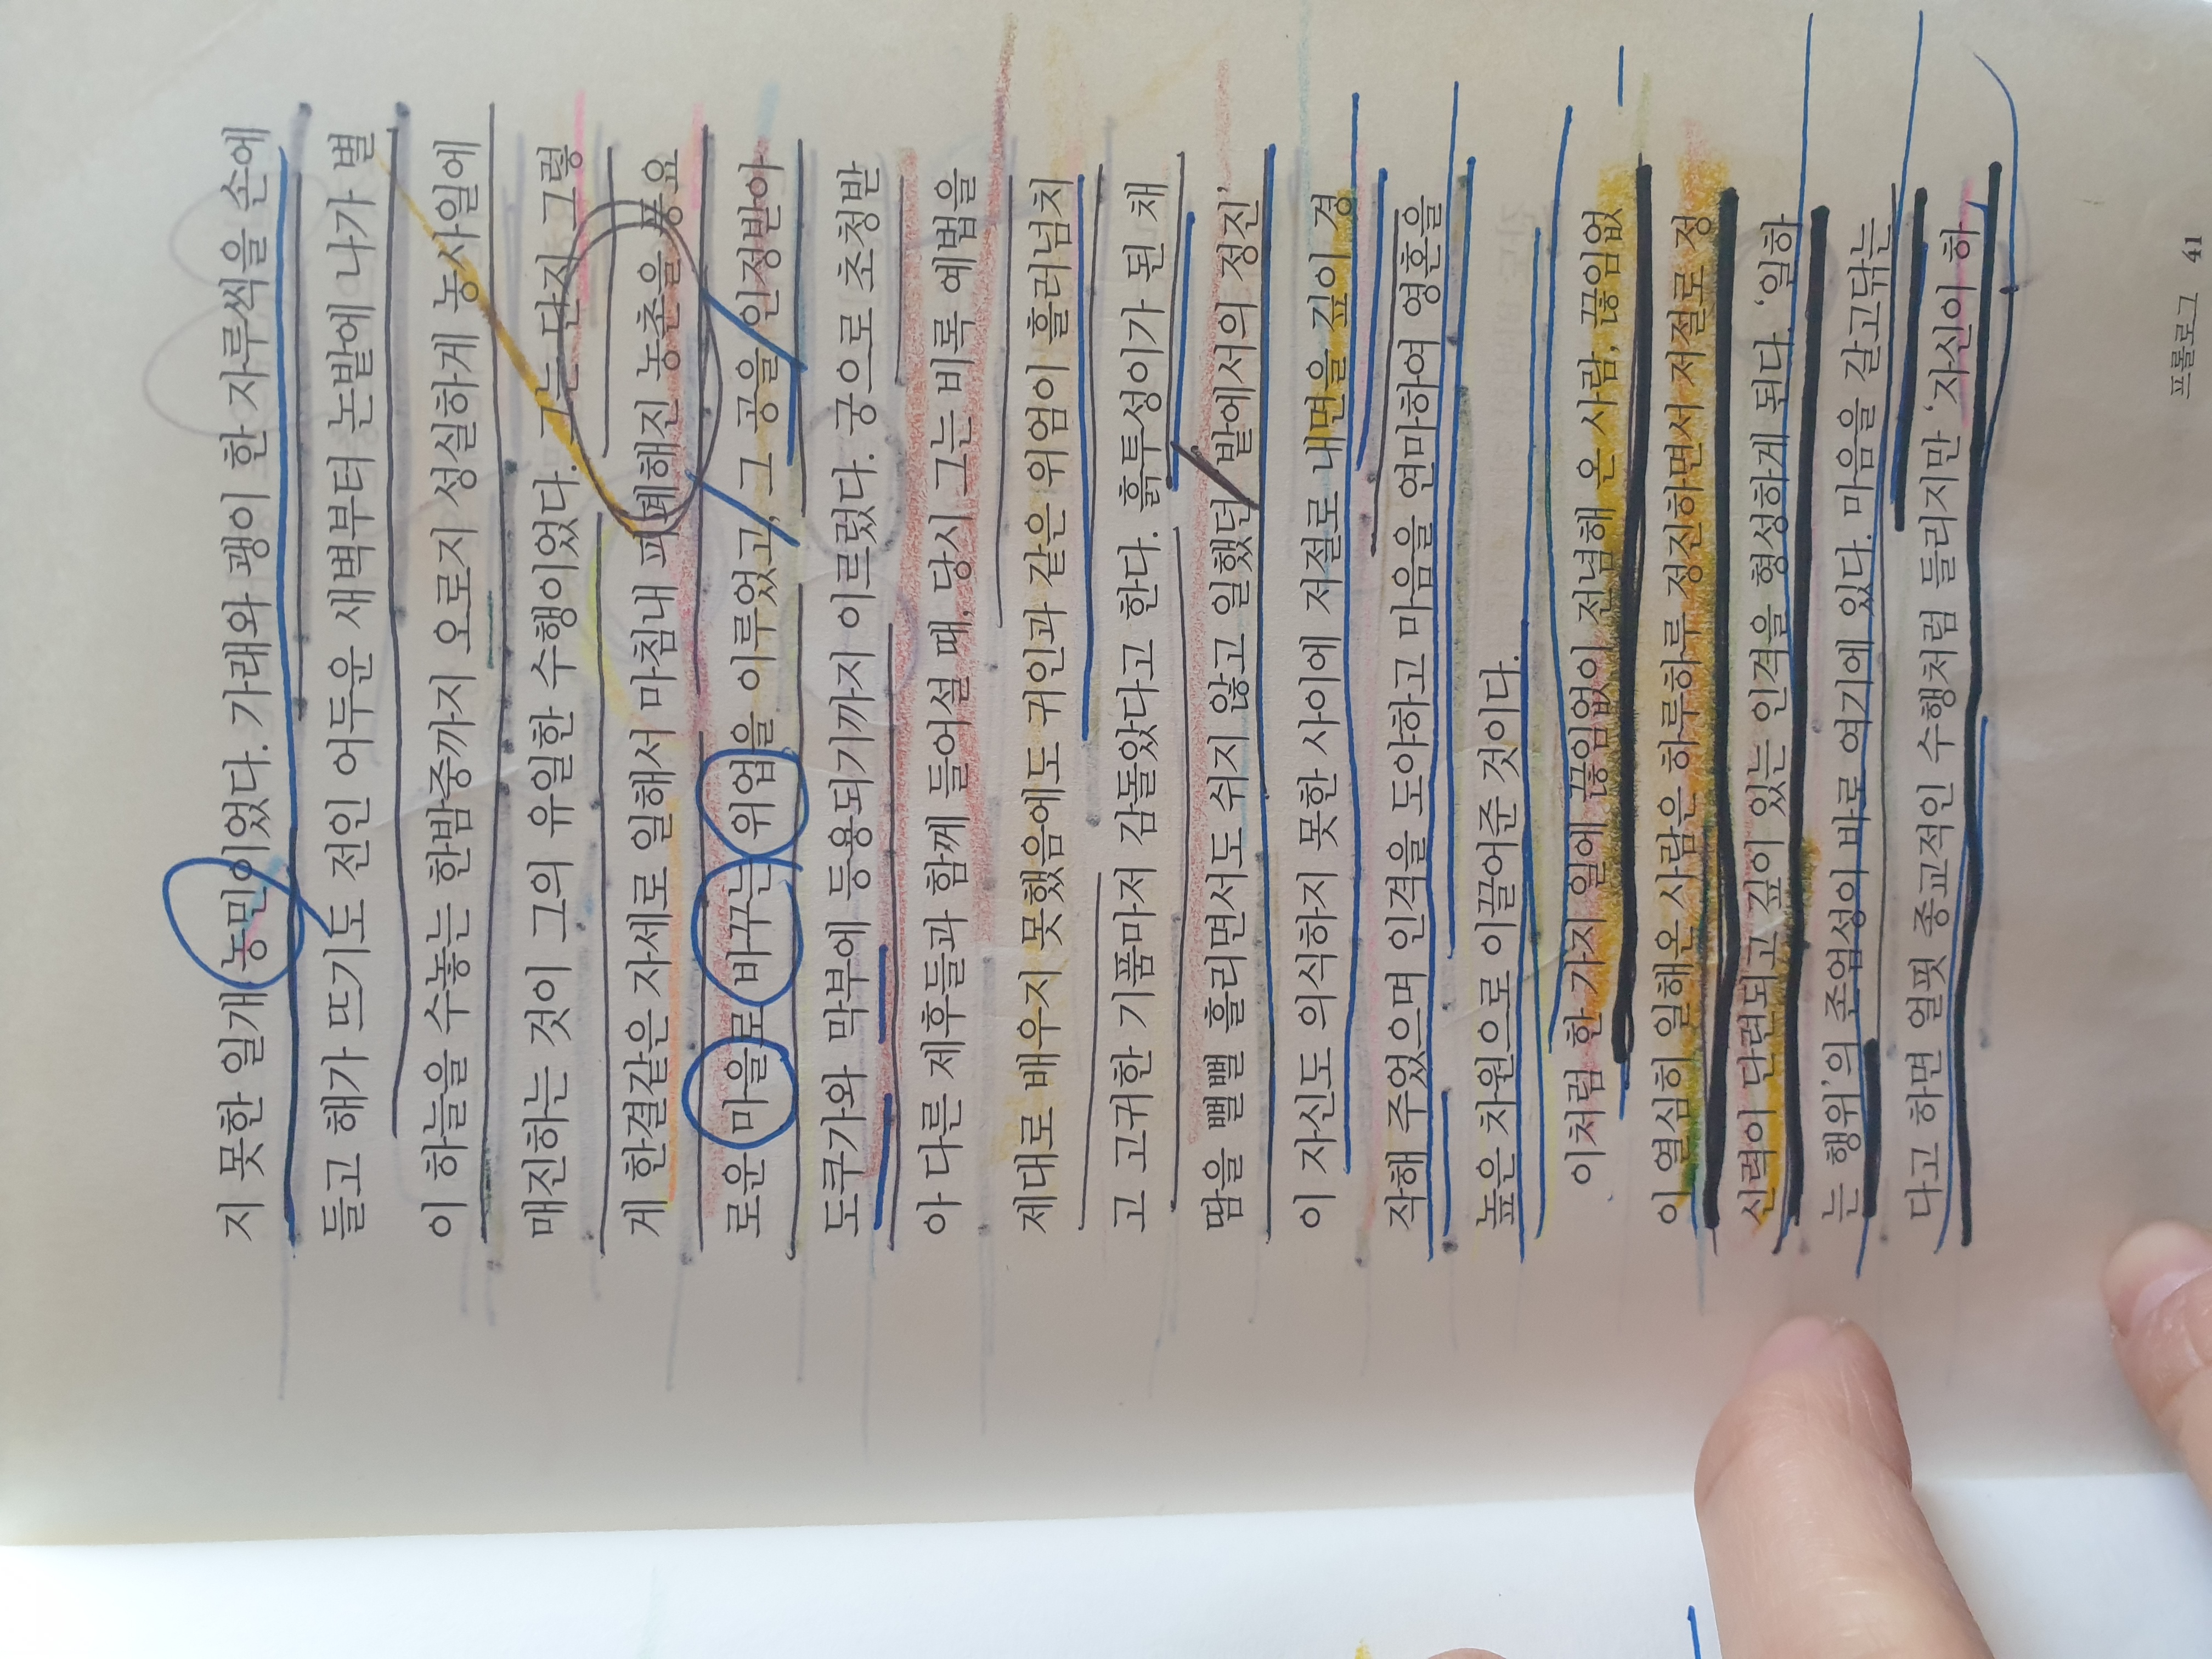 지 못한 일개 농민이었다. 가래와 괭이 한 자루씩을 손에
들고 해가 뜨기도 전인 어두운 새벽부터 논밭에 나가 별
이 하늘을 수놓는 한밤중까지 오로지 성실하게 농사일에
매진하는 것이 그의 유일한 수행이었다. 그는 단지 그렇
게 한결같은 자세로 일해서 마침내 피폐해진 농촌을 풍요
로운 마을로 바꾸는 위업을 이루었고, 그 공을 인정받아
도쿠가와 막부에 등용되기까지 이르렀다. 궁으로 초청받
아 다른 제후들과 함께 들어설 때, 당시 그는 비록 예법을
제대로 배우지 못했음에도 귀인과 같은 위엄이 흘러넘치
고 고귀한 기품마저 감돌았다고 한다. 흙투성이가 된 채
땀을 뻘뻘 흘리면서도 쉬지 않고 일했던 '밭에서의 정진'
이 자신도 의식하지 못한 사이에 저절로 내면을 깊이 경
작해 주었으며 인격을 도야하고 마음을 연마하여 영혼을
높은 차원으로 이끌어준 것이다.
이처럼 한 가지 일에 끊임없이 전념해 온 사람, 끊임없
이 열심히 일해온 사람은 하루하루 정진하면서 저절로 정
신력이 단련되고 깊이 있는 인격을 형성하게 된다. '일하
는 행위'의 존엄성이 바로 여기에 있다. 마음을 갈고닦는
다고 하면 얼핏 종교적인 수행처럼 들리지만 '자신이 하
프롤로그 41